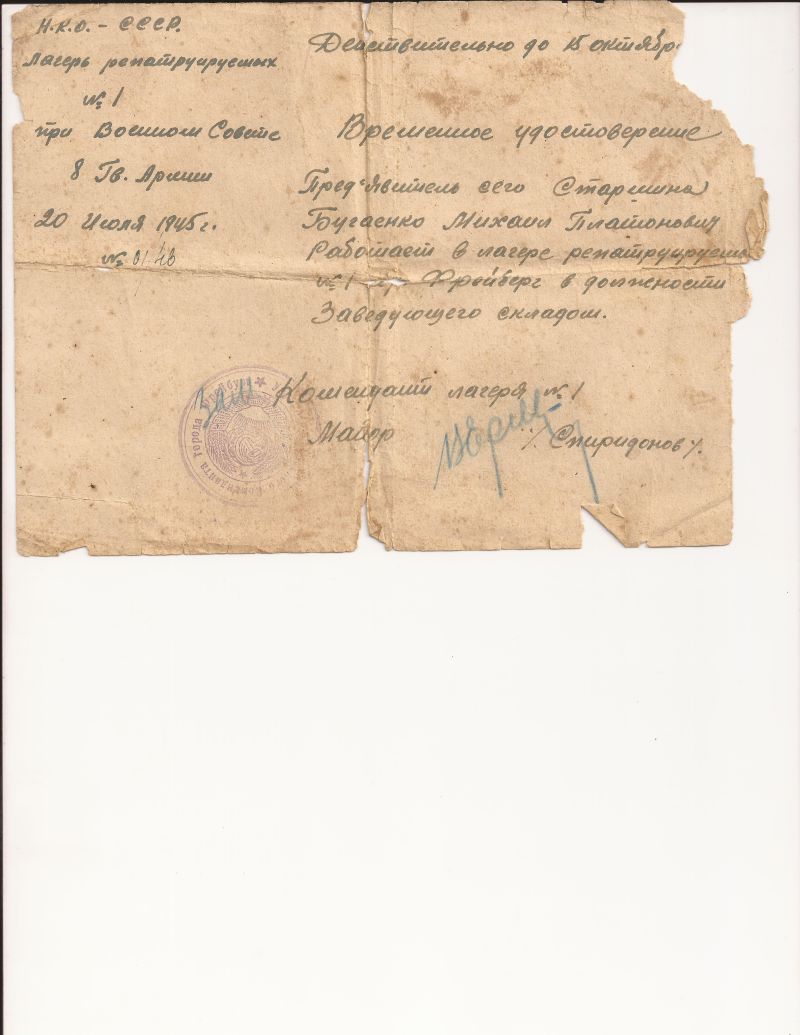 Н.К.О. - СССР.
Лагерь репатруируемых
№ 1
при Военном Совете
8 Гв. Армии
20 Июля 1945 г.
№ 01/40
Действительно до 15 октябр
Временное удостоверение
Пред'явитель сего Старшина
Бугаенко Михаил Платонович
Работает в лагере репатруируем
№ 1 Фрейберг в должности
Заведующего складом.
Зам Комендант лагеря № 1
Майор /Спиридонов/.
Коменданта города